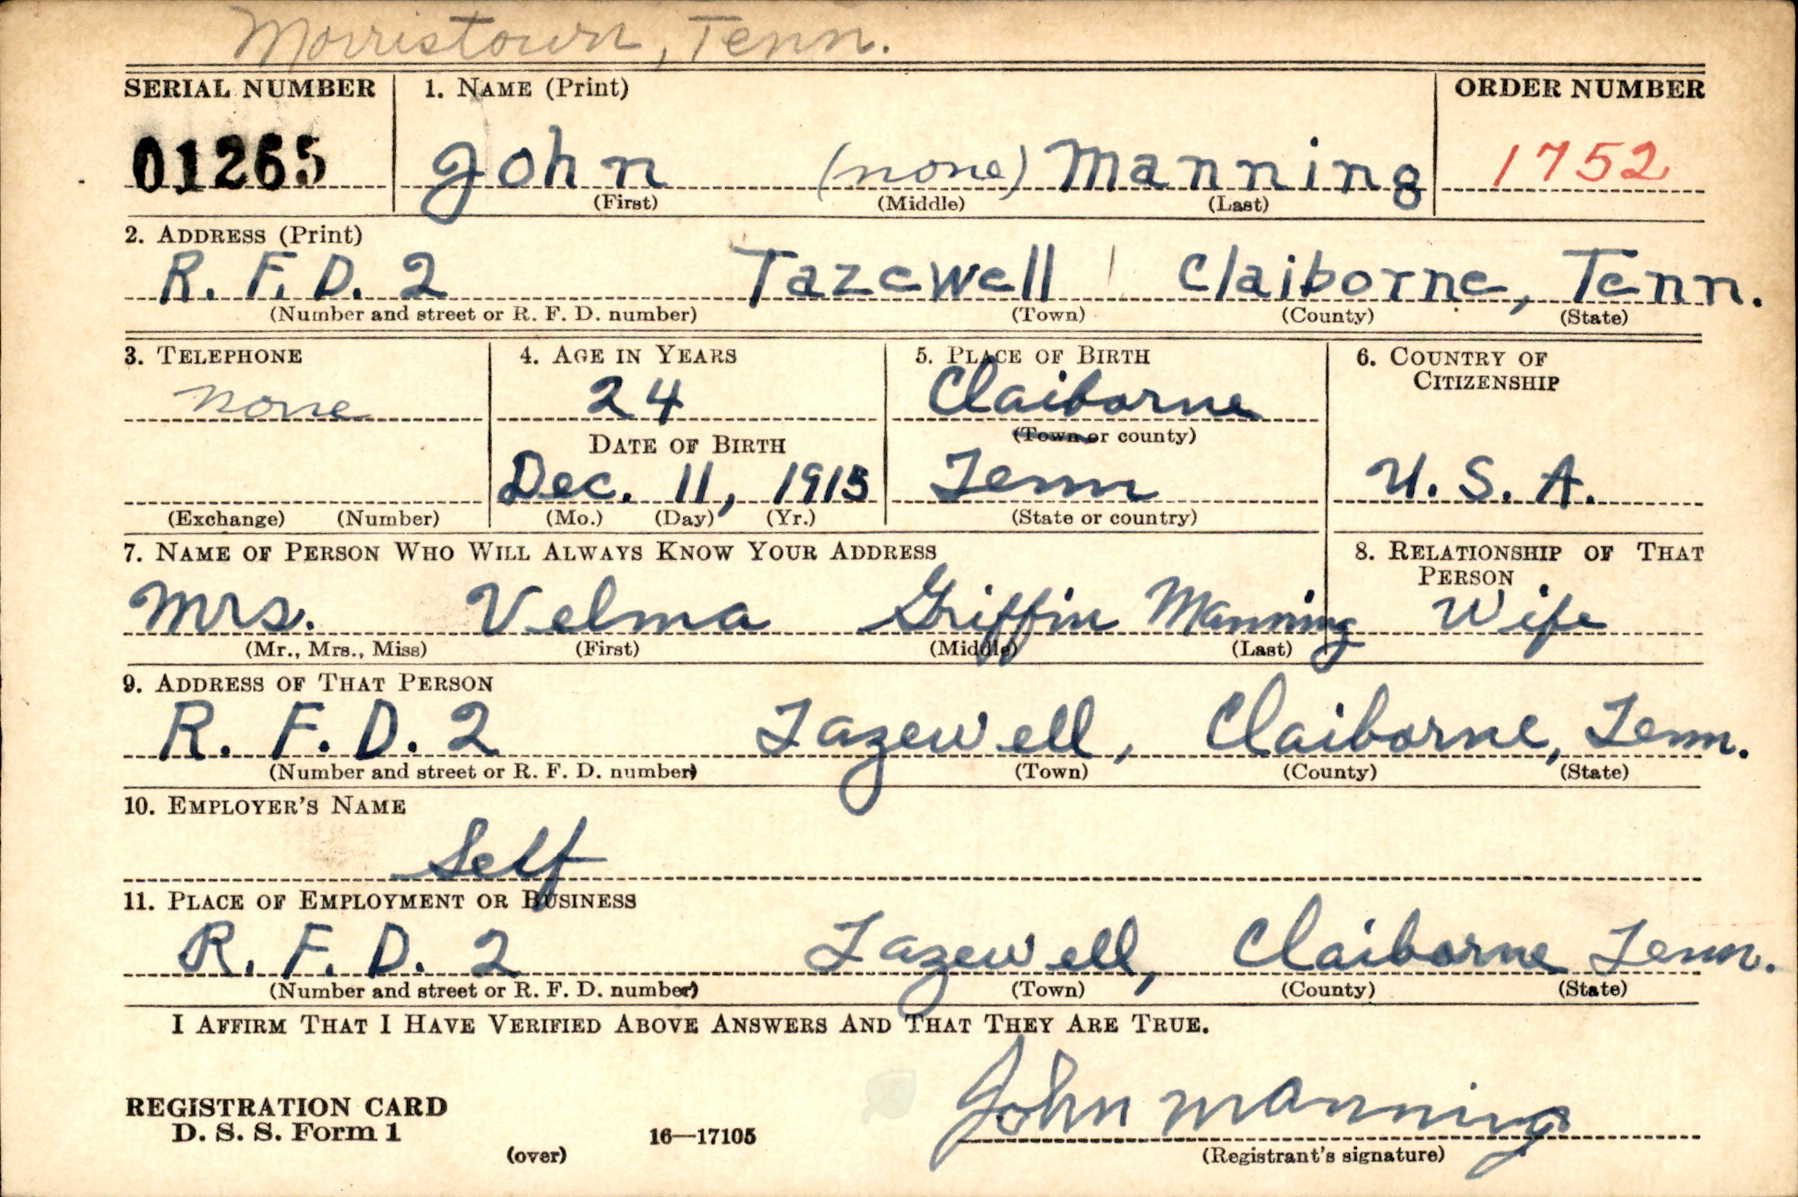 Morristown, Tenn.
SERIAL NUMBER 1. NAME (Print) ORDER NUMBER
01265 John (none) Manning 1752
(First) (Middle) (Last)
2. ADDRESS (Print)
R. F. D. 2 Tazewell Claiborne, Tenn.
(Number and street or R. F. D. number) (Town) (County) (State)
3. TELEPHONE 4. AGE IN YEARS 5. PLACE OF BIRTH 6. COUNTRY OF CITIZENSHIP
none 24 Claiborne
DATE OF BIRTH (Town or county)
Dec. 11, 1915 Tenn U. S. A.
(Exchange) (Number) (Mo.) (Day) (Yr.) (State or country)
7. NAME OF PERSON WHO WILL ALWAYS KNOW YOUR ADDRESS 8. RELATIONSHIP OF THAT PERSON
Mrs. Velma Griffin Manning Wife
(Mr., Mrs., Miss) (First) (Middle) (Last)
9. ADDRESS OF THAT PERSON
R. F. D. 2 Tazewell, Claiborne, Tenn.
(Number and street or R. F. D. number) (Town) (County) (State)
10. EMPLOYER'S NAME
Self
11. PLACE OF EMPLOYMENT OR BUSINESS
R. F. D. 2 Tazewell, Claiborne Tenn.
(Number and street or R. F. D. number) (Town) (County) (State)
I AFFIRM THAT I HAVE VERIFIED ABOVE ANSWERS AND THAT THEY ARE TRUE.
John Manning
REGISTRATION CARD
D. S. S. Form 1 16—17105
(over) (Registrant's signature)